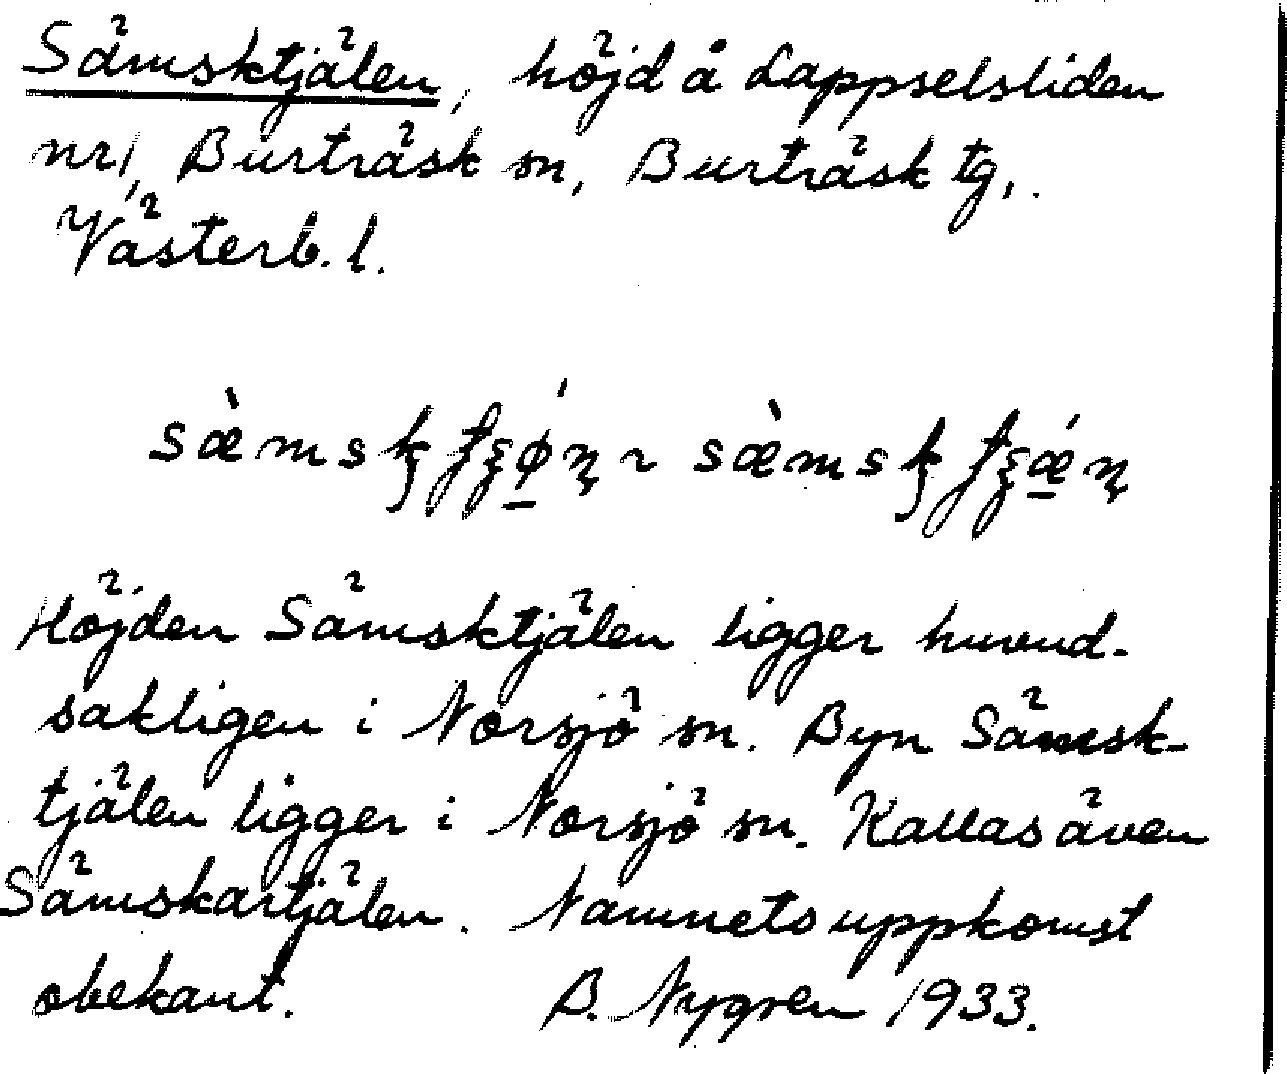 Sämsktjälen, höjd å Lappselsliden
nr 1, Burträsk sn, Burträsk tg,
Västerb. l.
Höjden Sämsktjälen ligger huvud-
sakligen i Norsjö sn. Byn Sämsk-
tjälen ligger i Norsjö sn. Kallas även
Sämskartjälen. Namnets uppkomst
obekant. B. Nygren 1933.